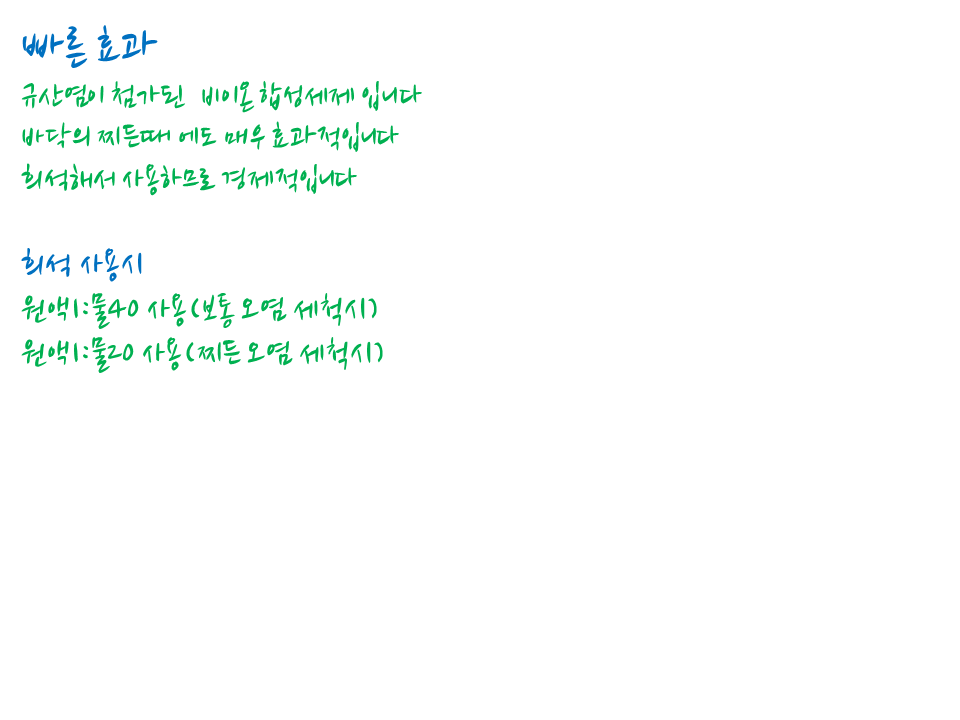 빠른 효과
규산염이 첨가된 비이온 합성세제 입니다
바닥의 찌든때 에도 매우 효과적입니다
희석해서 사용하므로 경제적입니다
희석 사용시
원액1:물40 사용(보통 오염 세척시)
원액1:물20 사용(찌든 오염 세척시)